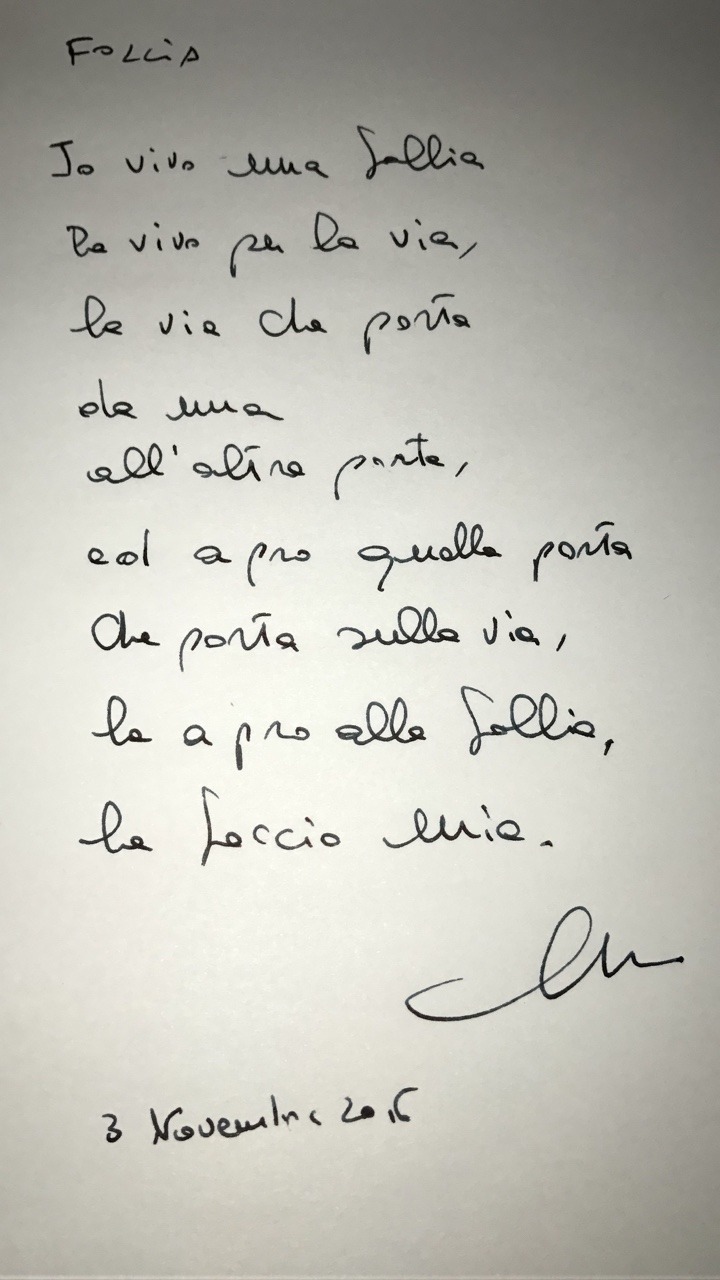 FOLLIA
Io vivo una follia
la vivo per la via,
la via che porta
da una
all'altra parte,
ed apro quella porta
che porta sulla via,
la apro alla follia,
la faccio mia.
3 Novembre 2016